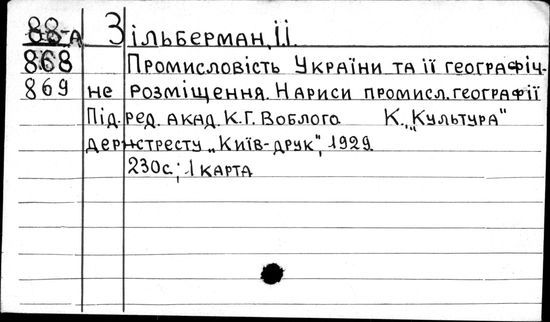 88-А Зільберман, І.І.
868 Промисловість України та її географіч-
869 не розміщення. Нариси промисл. географії
Під. ред. акад. К.Г. Воблого К., "Культура"
держтресту „Київ-друк", 1929.
230с.; 1 карта